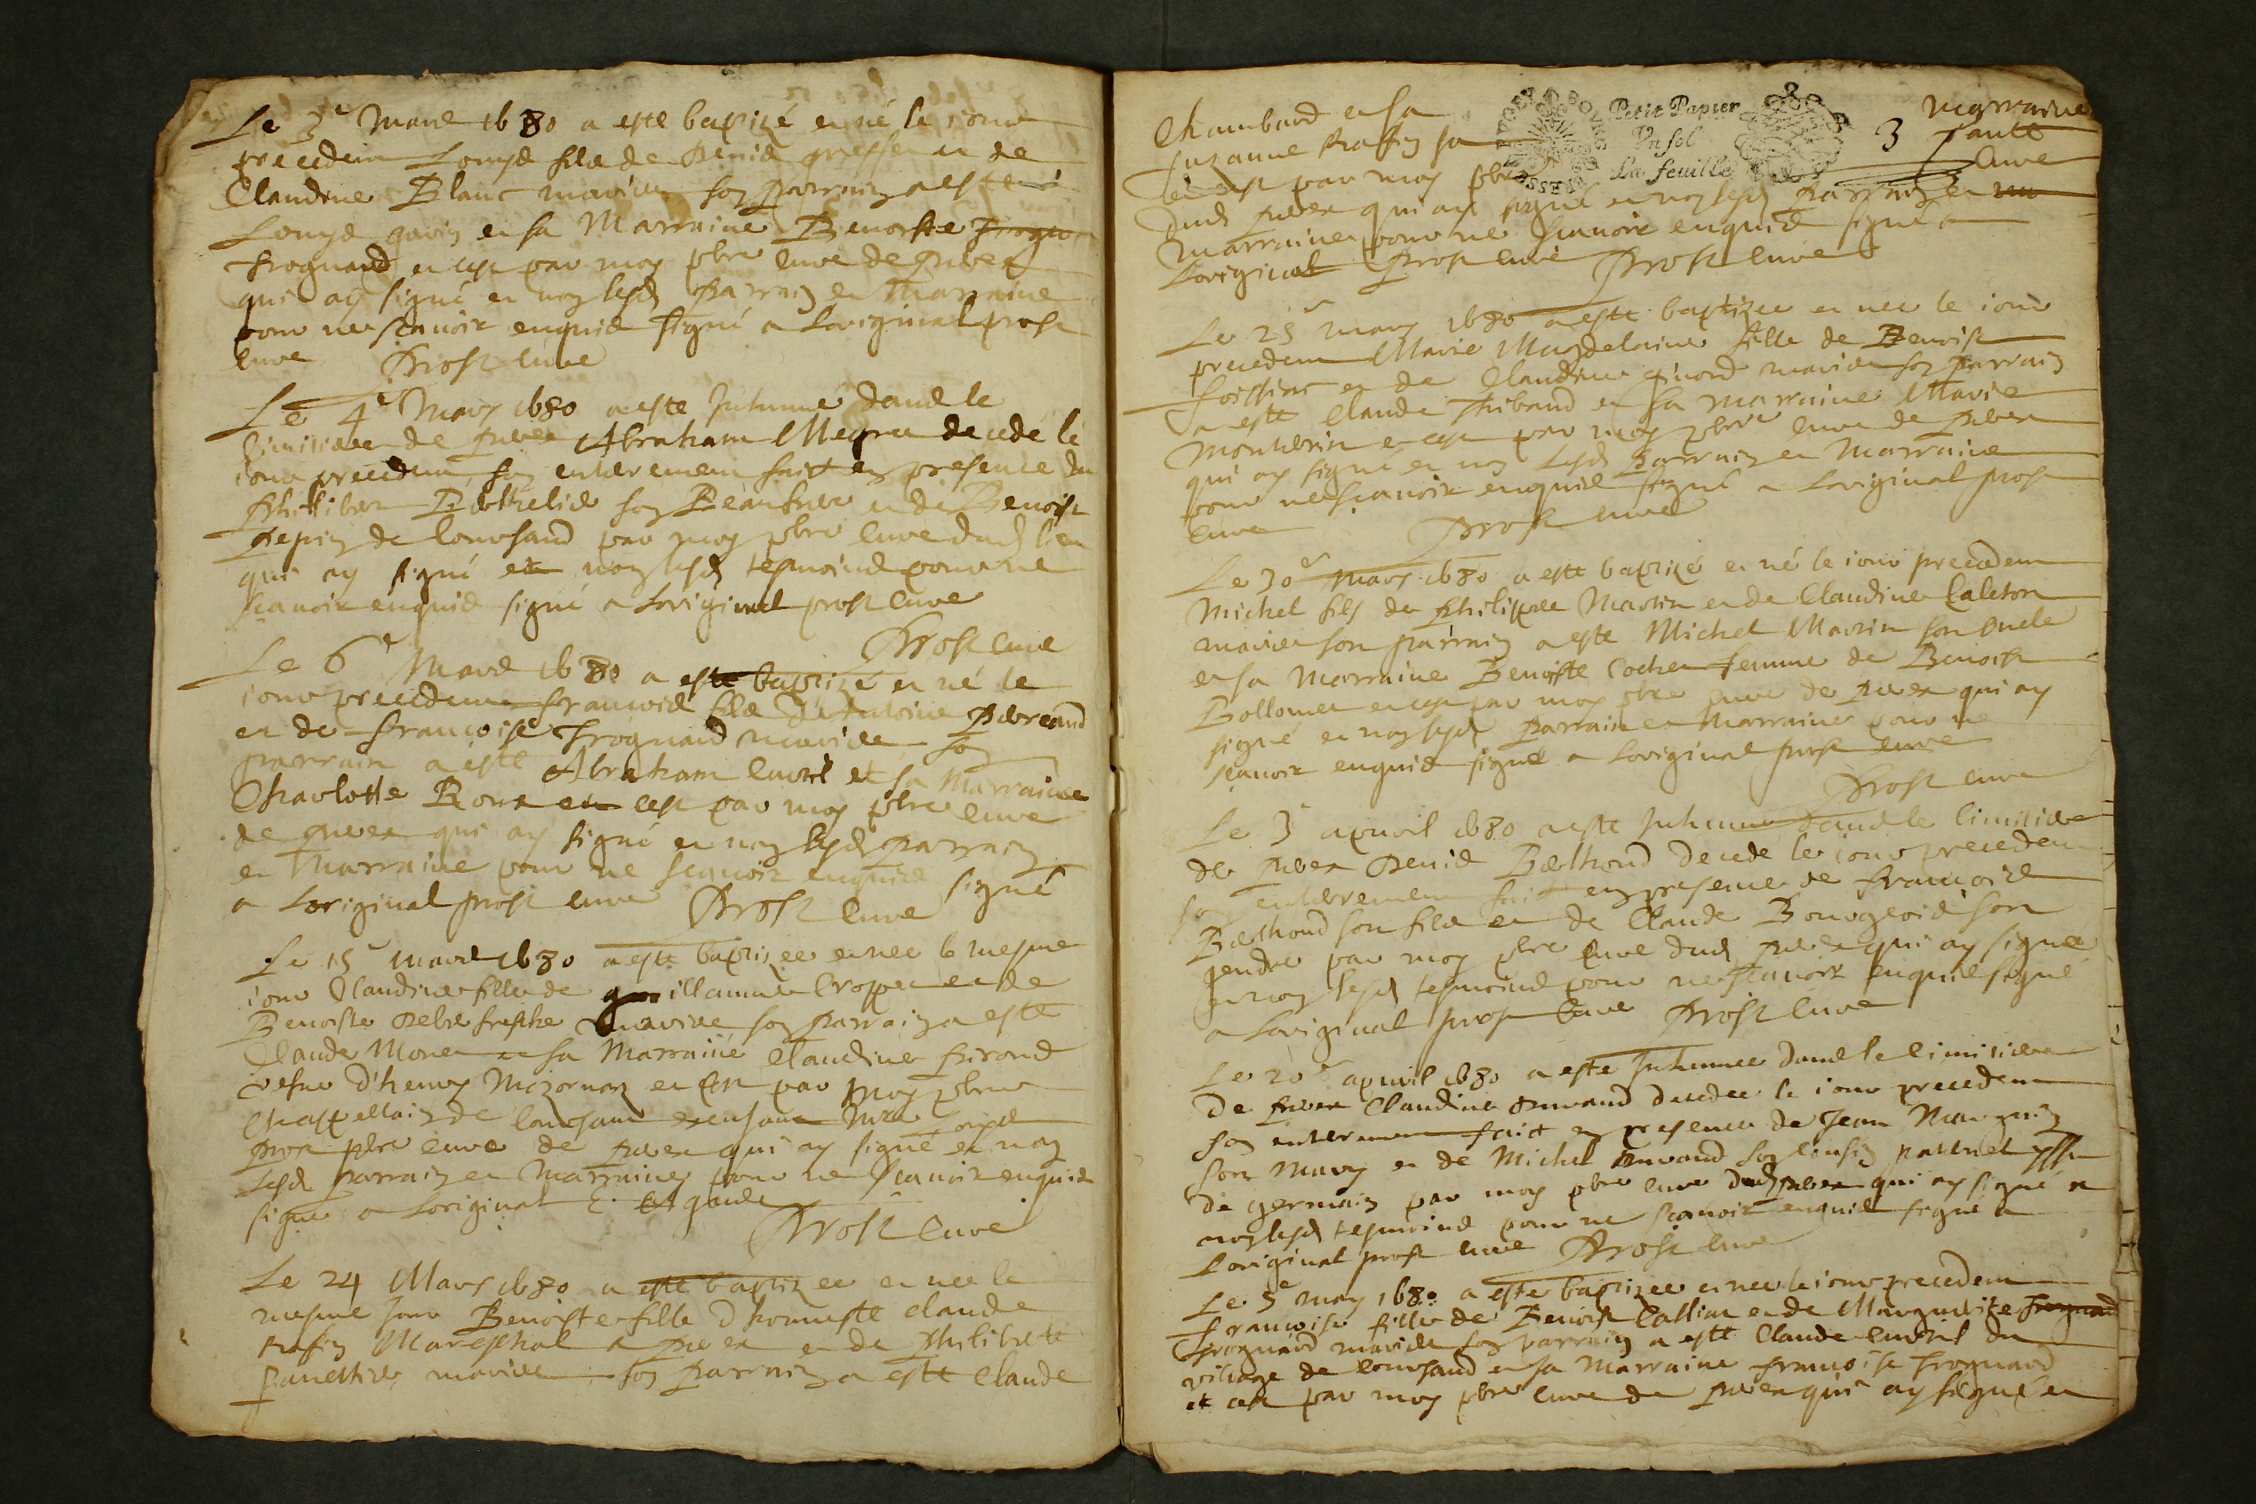 Le 3e Mars 1680 a este baptizé et né le jour
precedent Louys fils de Denis et de
Claudine Blanc mariés son parrain a esté
Louys et sa Marraine Benoiste
Frognard et ce par moy pbre curé de
qui ay signé et non lesd parrain et Marraine
pour ne scavoir enquis signé a Loriginal prost
curé Prost curé
Le 4e Mars 1680 a este Inhumé dans le
cimitiere de Abraham decedé le
jour precedent, son enterrement faict en presence de
Philibert son Beaufrere et de Benoist
Pepin de Coursand par moy pbre curé dud lieu
qui ay signé et non lesd tesmoins pour ne
scavoir enquis signé a Loriginal prost curé
Prost curé
Le 6e Mars 1680 a este baptizé et né le
jour precedent françois fils d'Antoine
et de françoise Frognard mariés son
parrain a este Abraham et sa Marraine
Charlotte et ce par moy pbre curé
de qui ay signé et non lesd parrain
et Marraine pour ne scavoir enquis signé
a Loriginal prost curé Prost curé
Le 15e mars 1680 a este baptizee et nee le mesme
jour Claudine fille de guillaume et de
Benoiste mariés son parrain a este
Claude et sa Marraine Claudine
vefve d'henry et ce par moy pbre
prost pbre curé de qui ay signé et non
lesd parrain et Marraine pour ne scavoir enquis
signé a Loriginal
Prost curé
Le 24 Mars 1680 a este baptizee et nee le
mesme jour Benoiste fille d'honneste claude
Rafin Mareschal a et de Philiberte
mariés son parrain a este Claude
Chambard et sa Marraine
Suzanne Rafin sa tante
et ce par moy pbre Curé
dud qui ay signé et non lesd parrain et
Marraine pour ne scavoir enquis signé a
Loriginal Prost curé Prost curé
Petit Papier
Un sol
La feuille
3
Le 25e mars 1680 a este baptizee et nee le jour
precedent Marie Magdelaine fille de Benoist
et de Claudine mariés son parrain
a este Claude Thibaud et sa marraine Marie
et ce par moy pbre curé de
qui ay signé et non lesd Parrain et Marraine
pour ne scavoir enquis signé a Loriginal prost
curé Prost curé
Le 30e Mars 1680 a este baptizé et né le jour precedent
Michel fils de Philippe Martin et de Claudine
mariés son parrain a este Michel Martin son oncle
et sa Marraine Benoiste femme de Benoist
et ce par moy pbre curé de qui ay
signé et non lesd Parrain et Marraine pour ne
scavoir enquis signé a Loriginal prost curé
Prost curé
Le 3e apvril 1680 a este Inhumé dans le cimitiere
de Denis Berthoud decede le jour precedent
son enterrement faict en presence de françois
Berthoud son fils et de Claude Bourgeois son
gendre par moy pbre curé dud qui ay signé
et non lesd tesmoins pour ne scavoir enquis signé
a Loriginal prost curé Prost curé
Le 20e apvril 1680 a este Inhumee dans le cimitiere
de Claudine decedee le jour precedent
son enterrement faict en presence de Jean
son Mary et de Michel son cousin paternel yssu
de germain par moy pbre curé dud qui ay signé et
non lesd tesmoins pour ne scavoir enquis signé a
Loriginal prost curé Prost curé
Le 5e may 1680 a este baptizee et nee le jour precedent
françoise fille de Benoist et de Marguerite
Frognard mariés son parrain a este Claude du
village de Coursand et sa Marraine françoise Frognard
et ce par moy pbre curé de qui ay signé et